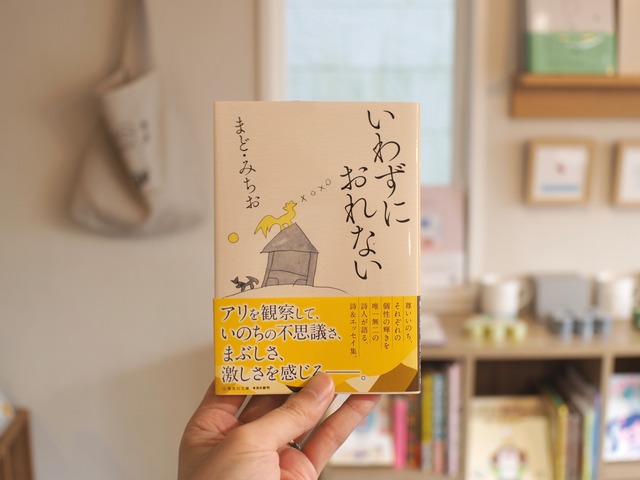 いわずに
おれない
まど・みちお
×○×○
尊いいのち、
それぞれの
個性の輝きを
唯一無一の
詩人が語る、
詩&エッセイ集。
アリを観察して、
いのちの不思議さ、
まぶしさ、
激しさを感じる――。
集英社文庫